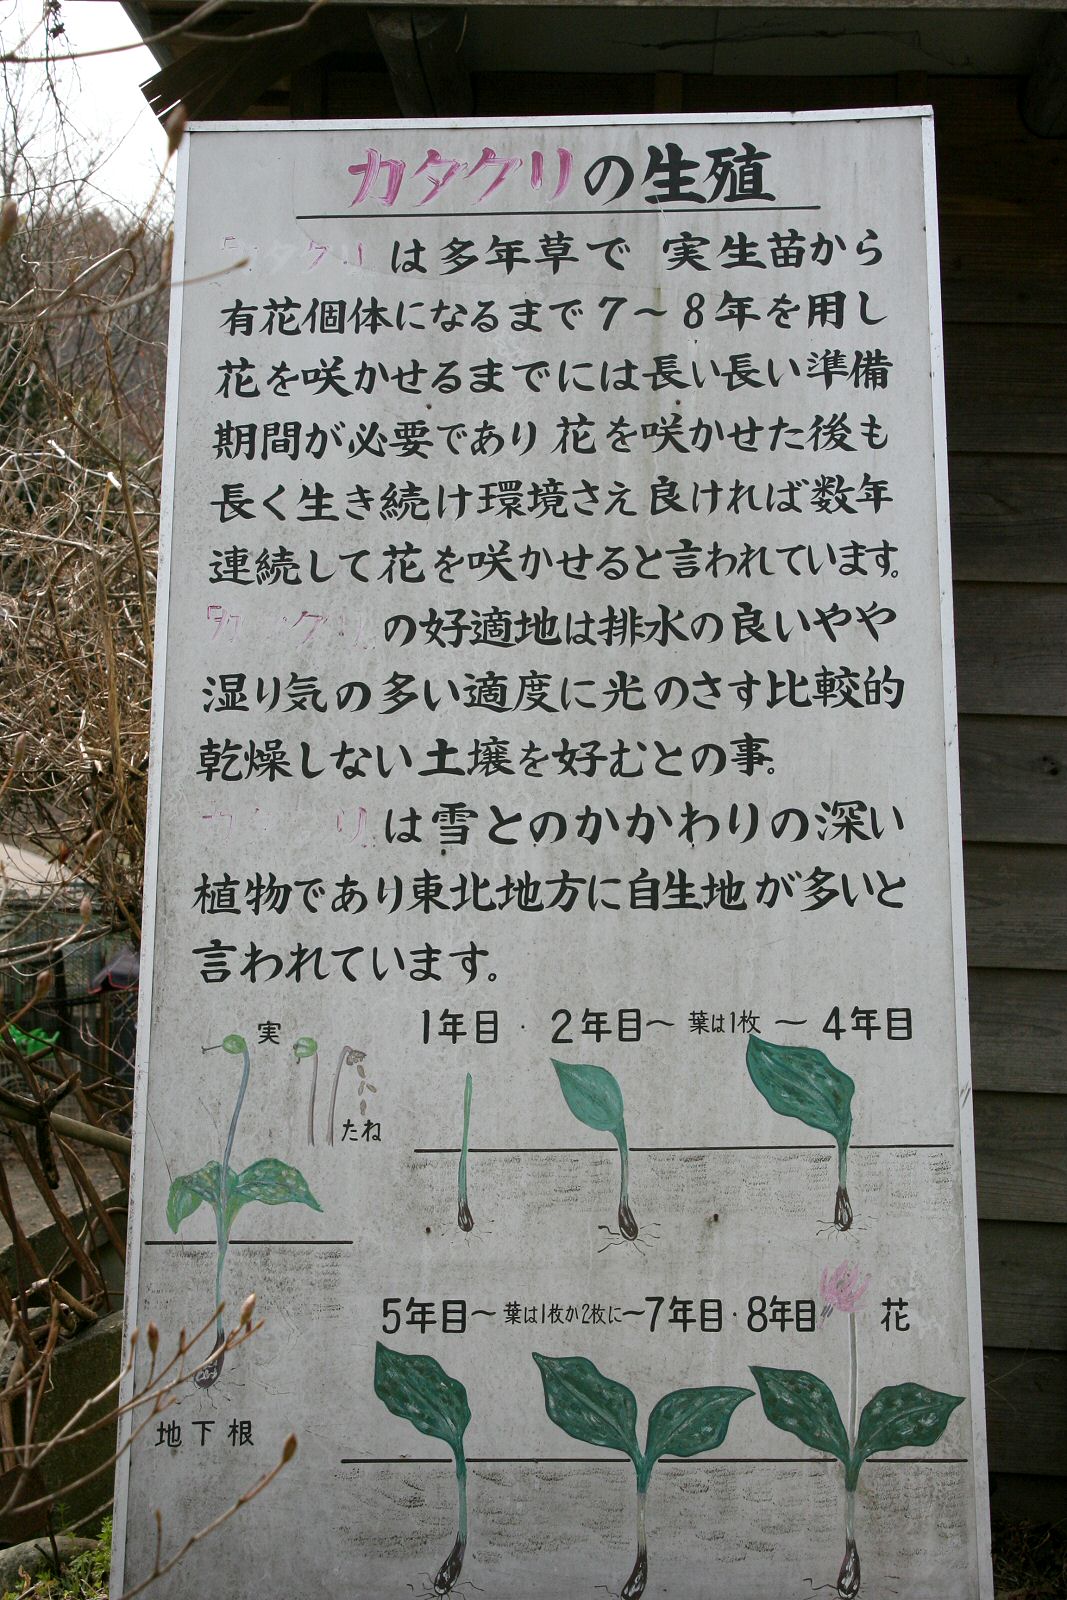 カタクリの生殖
カタクリは多年草で 実生苗から
有花個体になるまで7～8年を用し
花を咲かせるまでには長い長い準備
期間が必要であり花を咲かせた後も
長く生き続け環境さえ良ければ数年
連続して花を咲かせると言われています。
カタクリの好適地は排水の良いやや
湿り気の多い適度に光のさす比較的
乾燥しない土壌を好むとの事。
カタクリは雪とのかかわりの深い
植物であり東北地方に自生地が多いと
言われています。
実
たね
地下根
1年目・2年目～葉は1枚～4年目
5年目～葉は1枚か2枚に～7年目・8年目 花